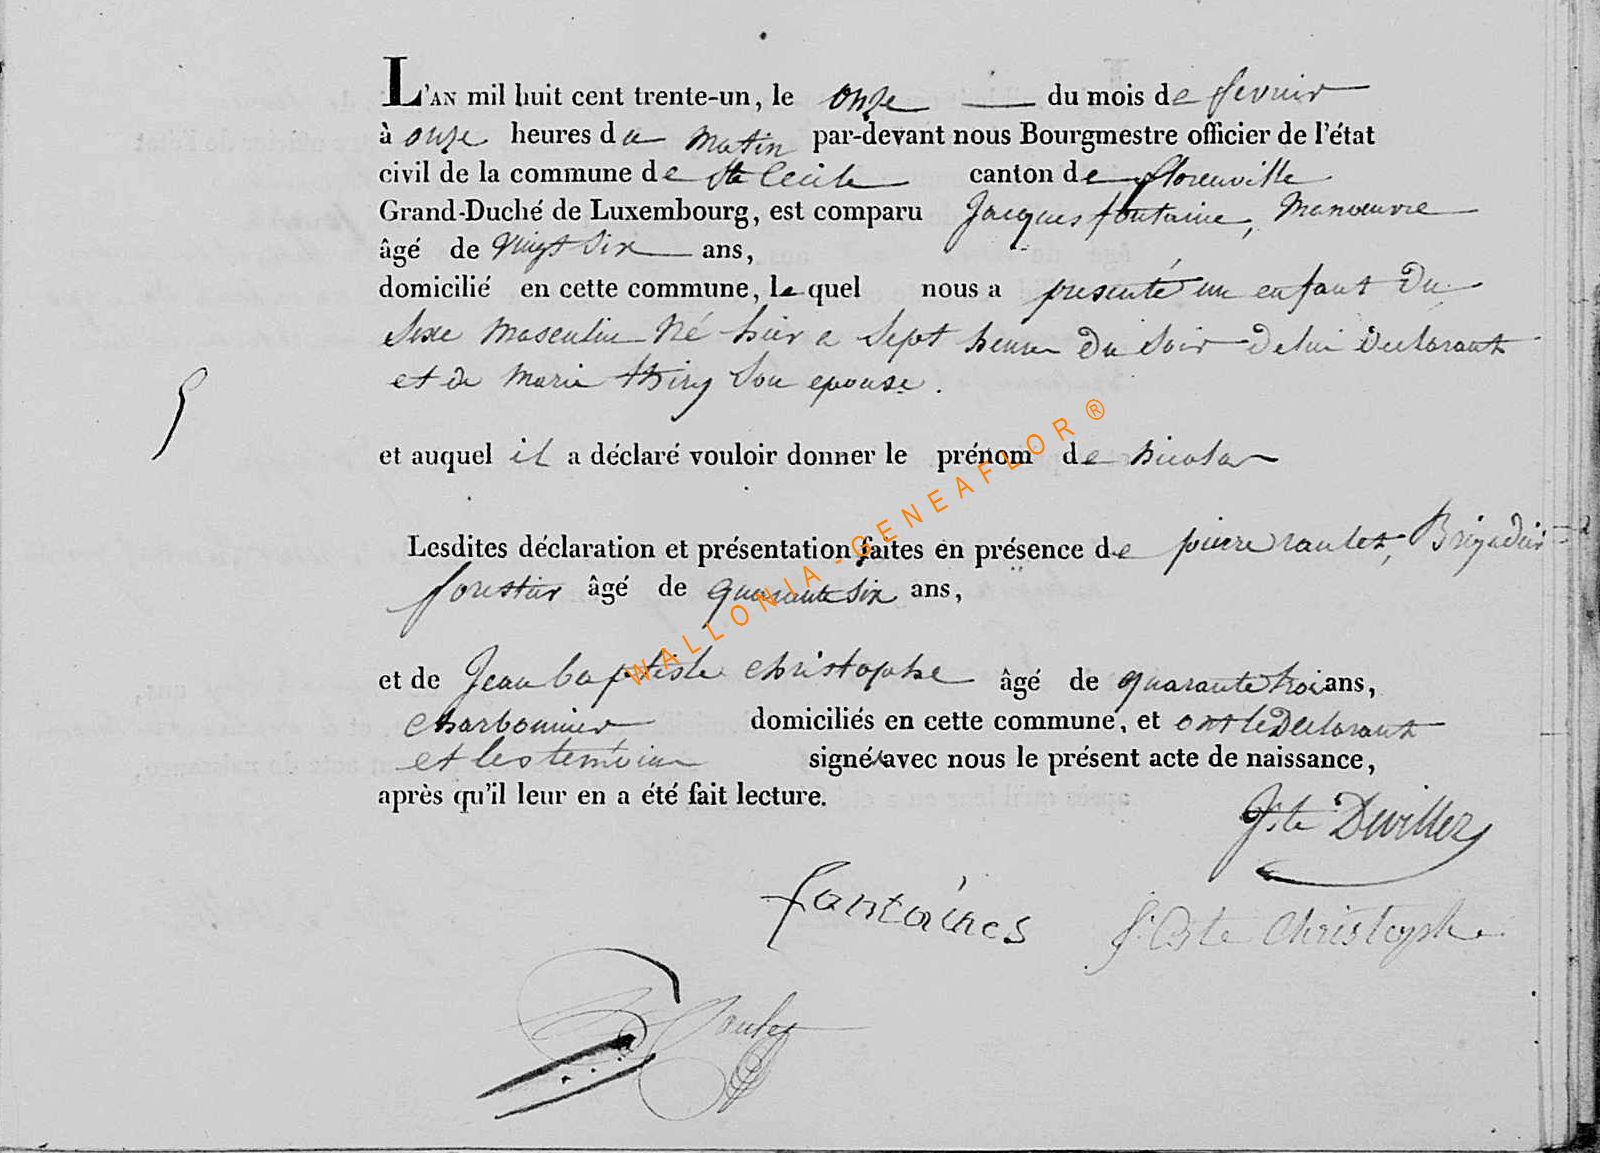 L'AN mil huit cent trente-un, le onze du mois de fevrier
à onze heures du matin par-devant nous Bourgmestre officier de l'état
civil de la commune de Ste Cecile canton de florenville
Grand-Duché de Luxembourg, est comparu Jacques fontaine, Manœuvre
âgé de vingt six ans,
domicilié en cette commune, le quel nous a presenté un enfant du
sexe masculin né hier a sept heures du soir de lui declarant
et de marie thiry son epouse.
5
et auquel il a déclaré vouloir donner le prénom de nicolas
Lesdites déclaration et présentation faites en présence de pierre raulet, Brigadier
forestier âgé de quarante six ans,
et de Jean baptiste christophe âgé de quarante trois ans,
charbonnier domiciliés en cette commune, et ont le declarant
et les temoins signé avec nous le présent acte de naissance,
après qu'il leur en a été fait lecture.
J. te Devillez
fantaines
J. Bte Christophe
Raulet
WALLONIA - GENEAFLOR ®